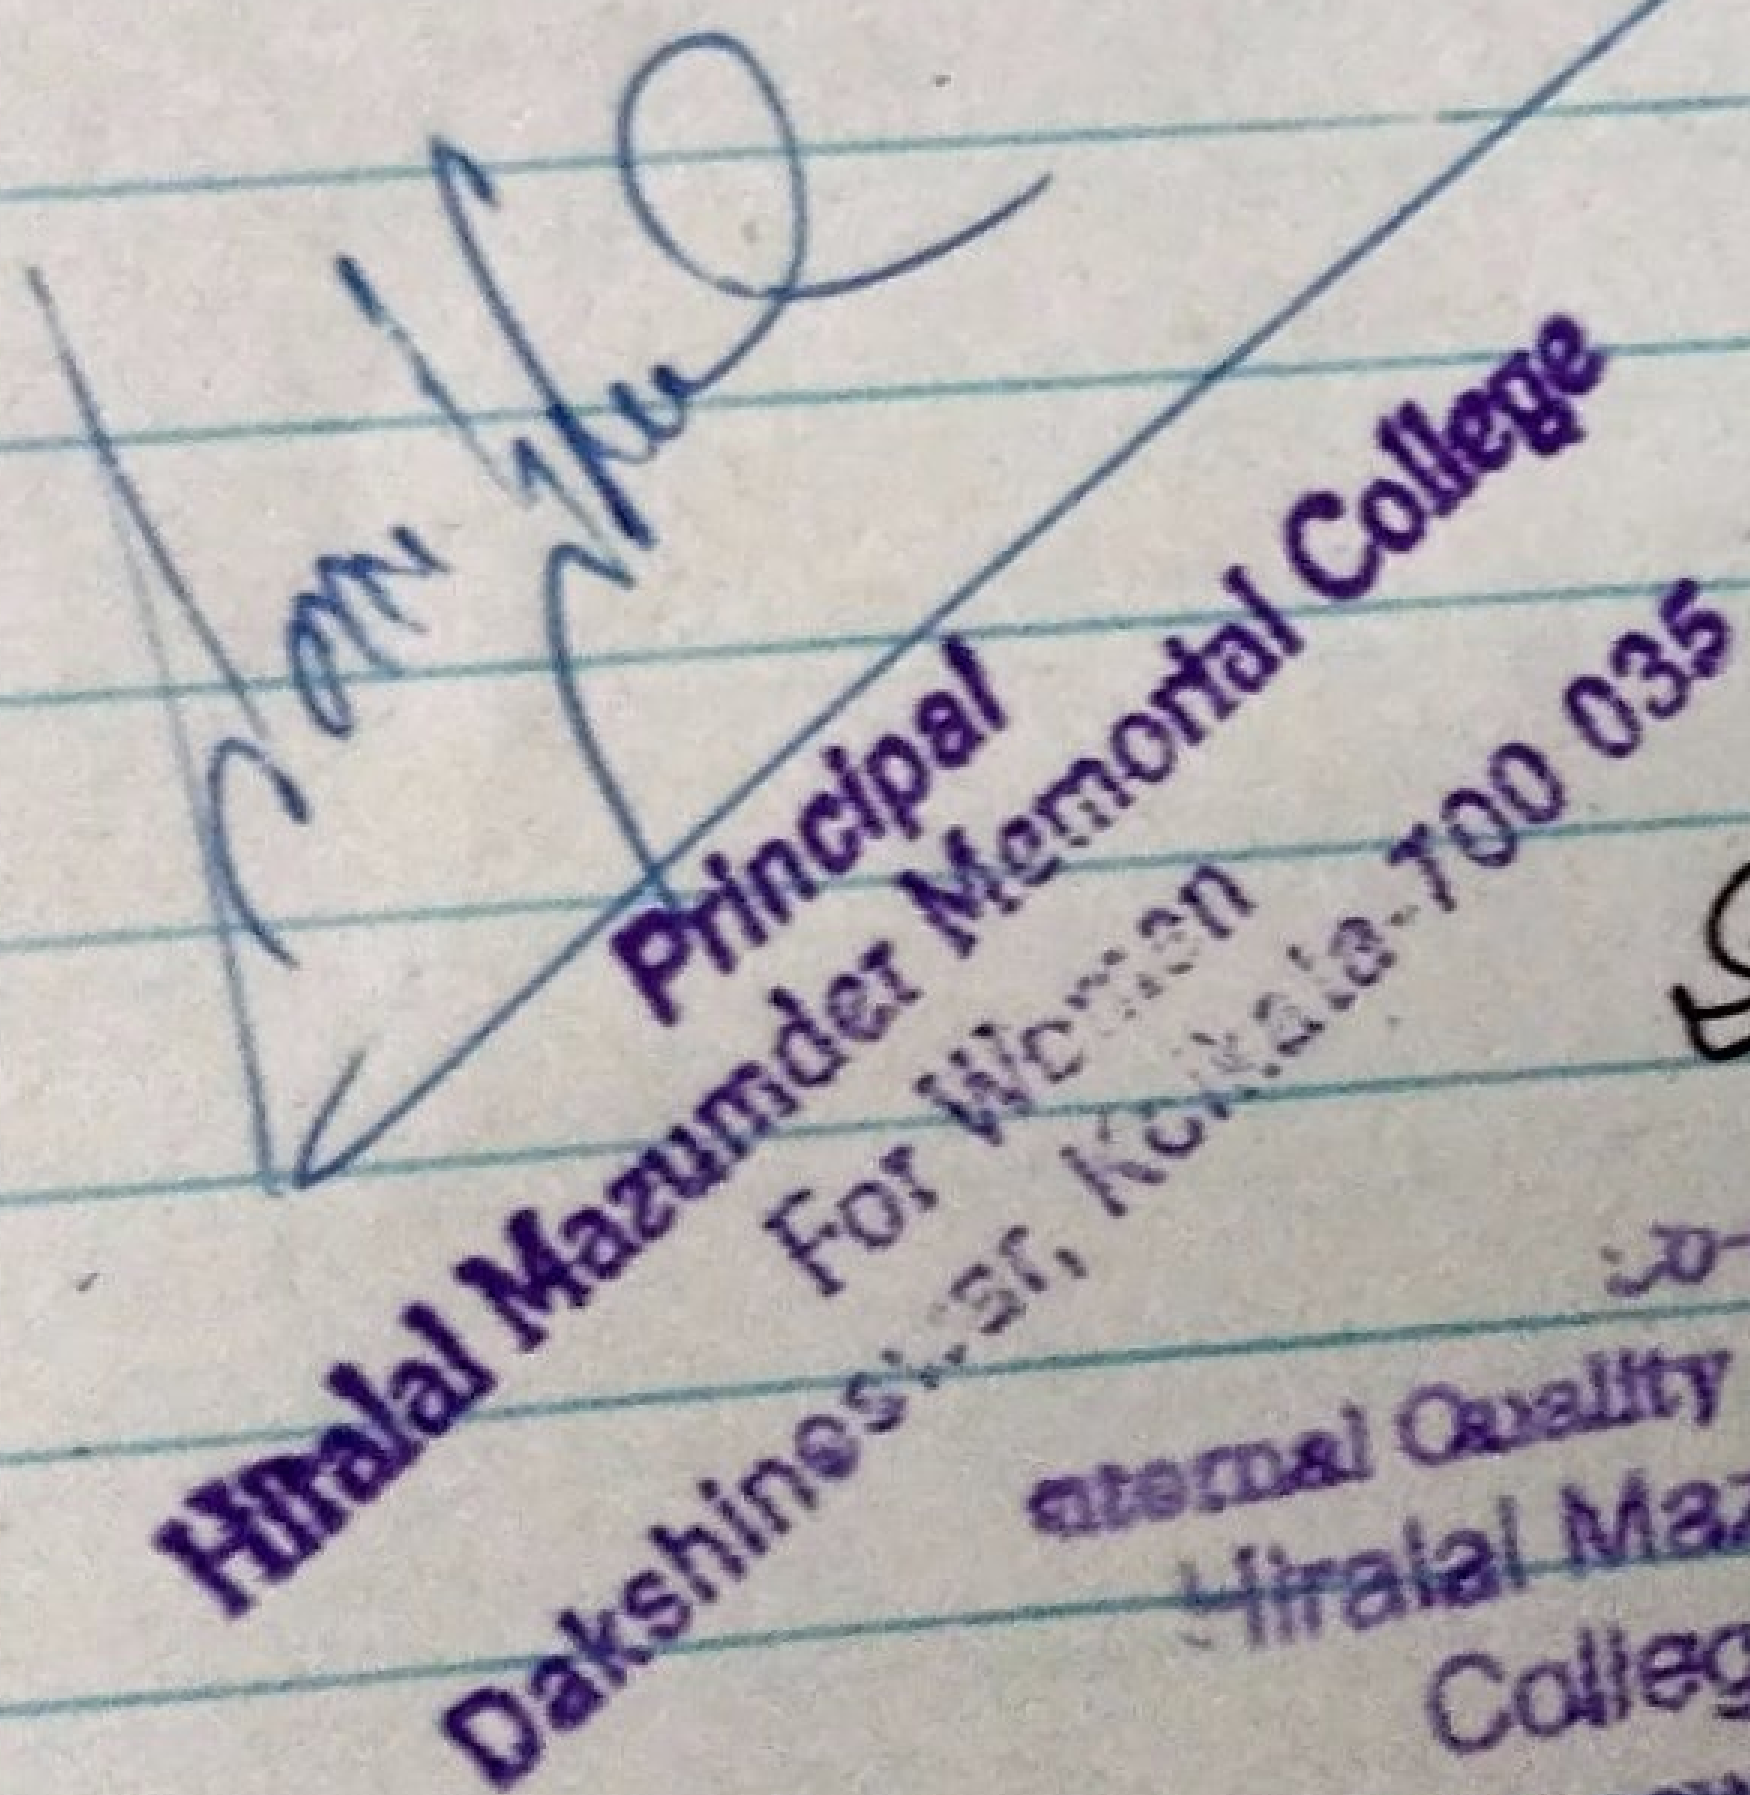 Principal
Hiralal Mazumder Memorial College
For Women
Dakshineswar, Kolkata-700 035
Co-
nternal Quality
Hiralal Maz
Colleg